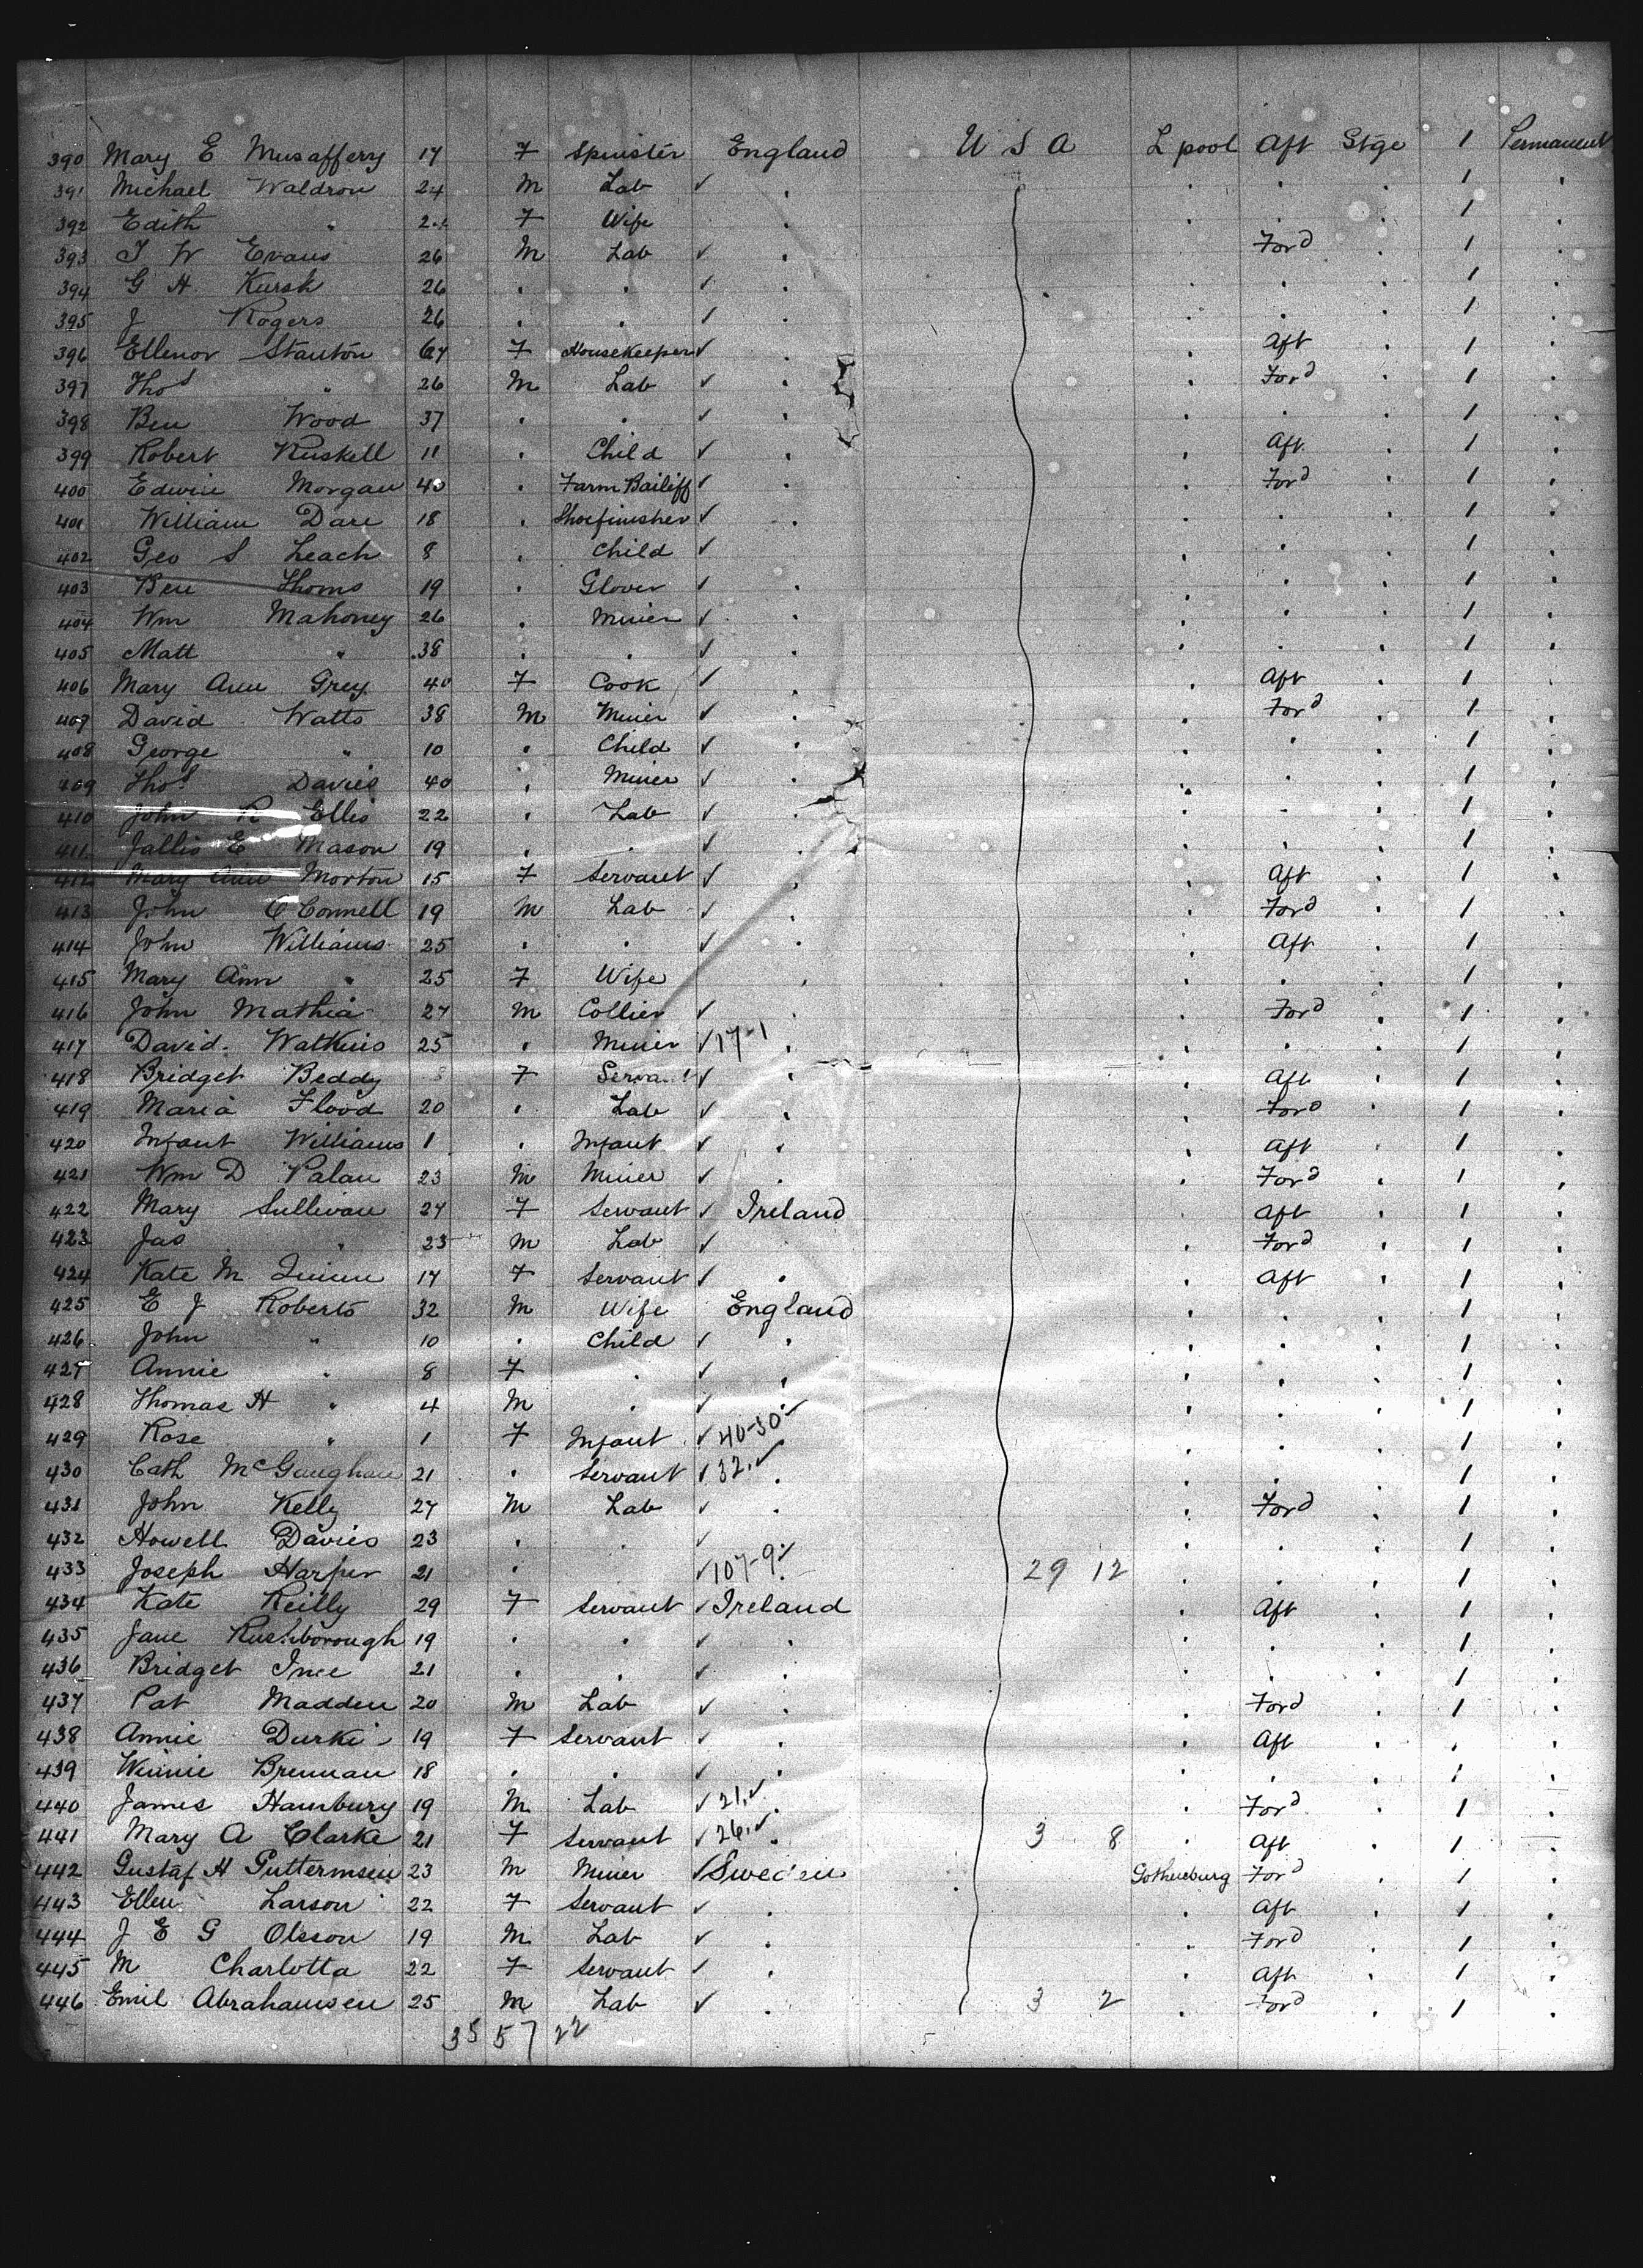 390 Mary E Musaffery 17 F Spinster England U S A L pool Aft Stge 1 Permanent
391 Michael Waldron 24 M Lab ✓ " " " " 1 "
392 Edith " F Wife " " " " 1 "
393 J W Evans 26 M Lab ✓ " " Ford " 1 "
394 G H Kursh 26 " " ✓ " " " " 1 "
395 J Rogers 26 " " ✓ " " " " 1 "
396 Ellenor Stanton 67 F Housekeeper ✓ " " Aft " 1 "
397 Thos " 26 M Lab ✓ " " Ford " 1 "
398 Ben Wood 37 " " ✓ " " " " 1 "
399 Robert Ruskell 11 " Child ✓ " " Aft " 1 "
400 Edwin Morgan 40 " Farm Bailiff ✓ " " Ford " 1 "
401 William Dare 18 " Shoefinisher ✓ " " " " 1 "
402 Geo S Leach 8 " Child ✓ " " " " 1 "
403 Ben Thoms 19 " Glover ✓ " " " " 1 "
404 Wm Mahoney 26 " Miner ✓ " " " " 1 "
405 Matt " 38 " " ✓ " " " " 1 "
406 Mary Ann Grey 40 F Cook ✓ " " Aft " 1 "
407 David Watts 38 M Miner ✓ " " Ford " 1 "
408 George " 10 " Child ✓ " " " " 1 "
409 Thos Davies 40 " Miner ✓ " " " " 1 "
410 John R Ellis 22 " Lab ✓ " " " " 1 "
411 E Mason 19 " " ✓ " " " " 1 "
412 Mary Ann Morton 15 F Servant ✓ " " Aft " 1 "
413 John O Connell 19 M Lab ✓ " " Ford " 1 "
414 John Williams 25 " " ✓ " " Aft " 1 "
415 Mary Ann " 25 F Wife " " " " 1 "
416 John Mathia 27 M Collier ✓ " " Ford " 1 "
417 David Watkins 25 " Miner ✓ 17-1 " " " " 1 "
418 Bridget Beddy F Servant ✓ " " Aft " 1 "
419 Maria Flood 20 " Lab ✓ " " Ford " 1 "
420 Infant Williams 1 " Infant ✓ " " Aft " 1 "
421 Wm D Palau 23 M Miner ✓ " " Ford " 1 "
422 Mary Sullivan 27 F Servant ✓ Ireland " Aft " 1 "
423 Jas " 23 M Lab ✓ " " Ford " 1 "
424 Kate M Quinn 17 F Servant ✓ " " Aft " 1 "
425 E J Roberts 32 M Wife England " " " 1 "
426 John " 10 " Child ✓ " " " " 1 "
427 Annie " 8 F " ✓ " " " " 1 "
428 Thomas H " 4 M " ✓ " " " " 1 "
429 Rose " 1 F Infant ✓ 40-30 ✓ " " " " 1 "
430 Cath McGaughan 21 " Servant ✓ 32 ✓ " " " " 1 "
431 John Kelly 27 M Lab ✓ " " Ford " 1 "
432 Howell Davies 23 " " ✓ " " " 1 "
433 Joseph Harper 21 " ✓ 107-9 ✓ 29 12 " " " 1 "
434 Kate Reilly 29 F Servant ✓ Ireland " Aft " 1 "
435 Jane Rushborough 19 " " ✓ " " " " 1 "
436 Bridget 21 " " ✓ " " " " 1 "
437 Pat Madden 20 M Lab ✓ " " Ford " 1 "
438 Annie 19 F Servant ✓ " " Aft " 1 "
439 Winnie Brennan 18 " " ✓ " " " " 1 "
440 James Hambury 19 M Lab ✓ 21 ✓ " " Ford " 1 "
441 Mary A Clarke 21 F Servant ✓ 26 ✓ " 3 8 " Aft " 1 "
442 Gustaf H 23 M Miner ✓ Sweden Gothenburg Ford " 1 "
443 Ellen Larson 22 F Servant ✓ " " Aft " 1 "
444 J E G Olsson 19 M Lab ✓ " " Ford " 1 "
445 M Charlotta 22 F Servant ✓ " " Aft " 1 "
446 Emil Abrahamsen 25 M Lab ✓ " 3 2 " Ford " 1 "
35 57 22